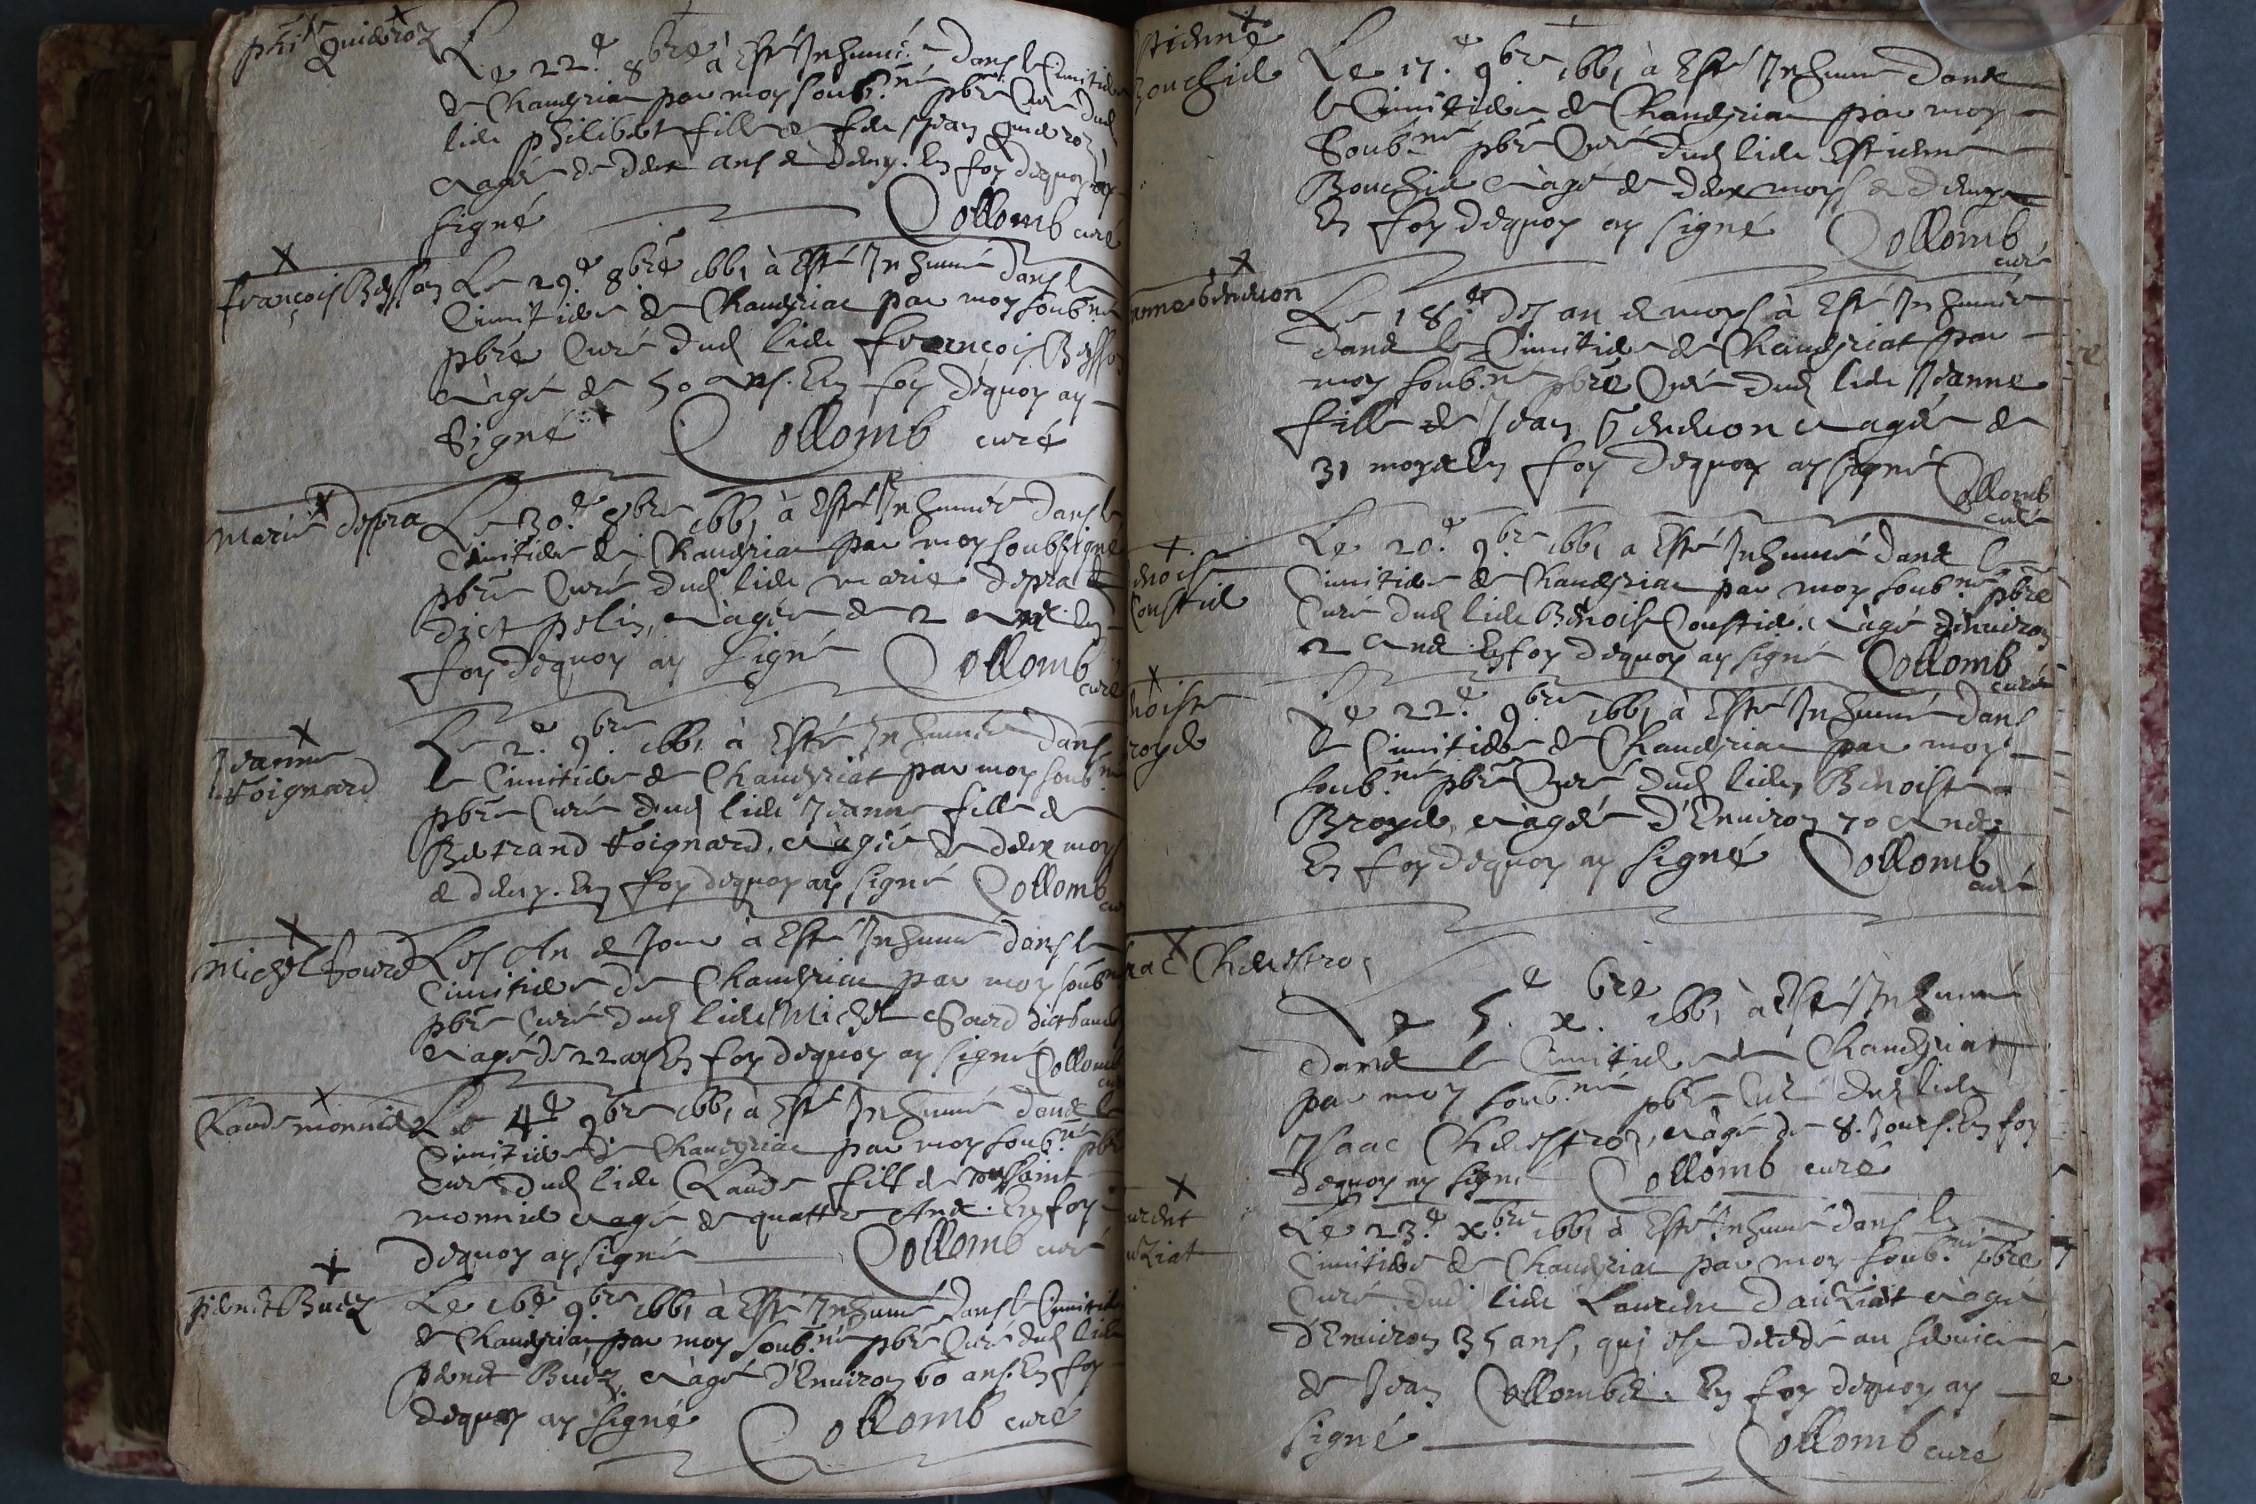 phi^t Guideroz
Le 22.^e 8^bre à Esté Inhumé dans le Cimitier
de Chaveyriac par moy soub.^né pbre Curé dud
lieu philibert fille de feu Jean Guideroz
eagée de deux ans & demy. En foy dequoy ay
signé Collomb curé
françois Besson
Le 29.^e 8^bre 1661 à Esté Inhumé dans le
Cimitier de Chaveyriac par moy soub^né
pbre Curé dud lieu françois Besson
eàgé de 50 ans. En foy dequoy ay
Signé Collomb curé
Marie depra
Le 30.^e 8^bre 1661 à Esté Inhumée dans le
Cimitier de Chaveyriac par moy soubsigné
pbre Curé dud lieu marie depra
dict pelin, eàgée de 2 ans En
foy dequoy ay signé Collomb curé
Jeanne
foignard
Le 2.^e 9^bre 1661 à Esté Inhumée dans
le Cimitier de Chaveyriat par moy soub^né
pbre Curé dud lieu Jeanne fille de
Bertrand foignard, eàgée de deux moys
& demy. En foy dequoy ay signé Collomb curé
Michel Sourd
Les An & Jour à Esté Inhumé dans le
Cimitier de Chaveyriac par moy soub^né
pbre Curé dud lieu Michel Sourd dict
eagé de 22 ans En foy dequoy ay signé Collomb curé
Claude monnier
Le 4^e 9^bre 1661 à Esté Inhumé dans le
Cimitier de Chaveyriac par moy soub^né pbre
Curé dud lieu Claude fils de toussaint
monnier eagé de quattre Ans. En foy
dequoy ay signé Collomb curé
pernet Buez
Le 16^e 9^bre 1661 à Esté Inhumé dans le Cimitier
de Chaveyriac par moy soub^né pbre Curé dud lieu
pernet Buez eàgé d'Environ 60 ans. En foy
dequoy ay signé Collomb curé
stienne
Bouchie
Le 17.^e 9^bre 1661 à Esté Inhumé dans
le Cimitier de Chaveyriac par moy
Soub^né pbre Curé dud lieu Estienne
Bouchie eàgé de deux moys & demy
En foy dequoy ay signé Collomb curé
anne
Le 18.^e des an & moys à Esté Inhumée
dans le Cimitier de Chaveyriat par
moy soub^né pbre Curé dud lieu Jeanne
fille de Jean eagée de
31 moys En foy dequoy ay signé Collomb
curé
enoist
Constie
Le 20.^e 9^bre 1661 a Esté Inhumé dans le
Cimitier de Chaveyriac par moy soub^né pbre
Curé dud lieu Benoist Constie. eàgé d'environ
2 Ans En foy dequoy ay signé Collomb
curé
noiste
royer
Le 22.^e 9^bre 1661 à Esté Inhumée dans
le Cimitier de Chaveyriac par moy
soub^né pbre Curé dud lieu, Benoiste
Broyer, eàgée d'Environ 70 Ans
En foy dequoy ay signé Collomb
curé
aac Chevestroz
Le 5.^e x.^bre 1661 à Esté Inhumé
dans le Cimitier de Chaveyriat
par moy soub^né pbre Curé dud lieu
Isaac Chevestroz, eàgé de 8. Jours. En foy
dequoy ay signé Collomb curé
urent
uziat
Le 23.^e x^bre 1661 à Esté Inhumé dans le
Cimitier de Chaveyriac par moy soub^né pbre
Curé dud lieu Laurent dauziat eàgé
d'Environ 35 ans, qui est decedé au service
de Jean Collombet. En foy dequoy ay
signé Collomb curé